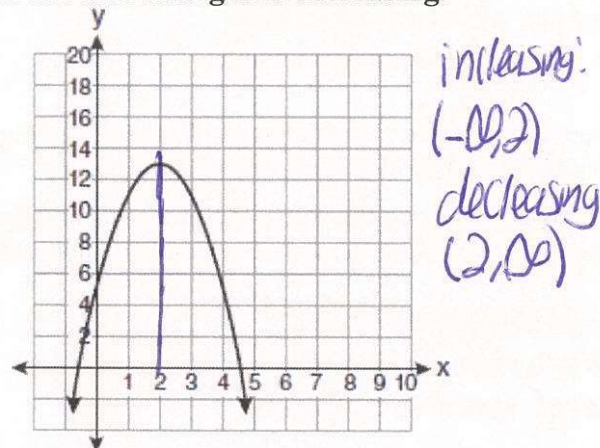 y
20
18
16
14
12
10
8
6
4
2
1 2 3 4 5 6 7 8 9 10 x
increasing:
(-∞,2)
decreasing
(2,∞)